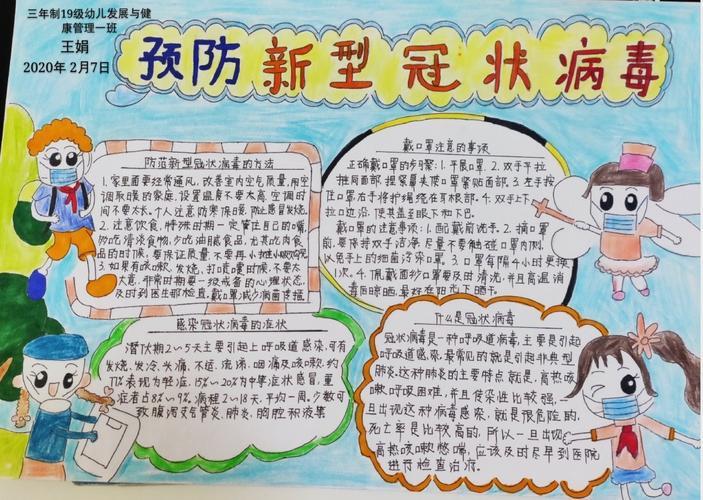 三年制19级幼儿发展与健
康管理一班
王娟
2020年2月7日
预防新型冠状病毒
防范新型冠状病毒的方法
1.家里面要经常通风，改善室内空气质量，用空
调取暖的家庭，设置温度不要太高，空调时
间不要太长。个人注意防寒保暖，防止感冒发烧。
2.注意饮食，特殊时期一定管住自己的嘴，
勿吃清淡食物，少吃油腻食品，尤其吃肉食
品的时候，要保证质量，不要再小
3.如果有咳嗽、发烧、打喷嚏时候，不要太
大意，非常时期要一级戒备的心理状态，
及时到医生那检查，戴口罩减少病菌传播
戴口罩注意的事项
正确戴口罩的步骤：1.平展口罩，2.双手平拉
推向面部，捏紧鼻夹使口罩紧贴面部，3.左手按
住口罩右手将护绳绕在耳根部。4.双手上下
拉口边沿，使其盖至眼下和下巴。
戴口罩的注意事项：1.配戴前洗手。2.摘口罩
前，要保持双手洁净，尽量不要触碰口罩内侧，
以免手上的细菌污染口罩。3.口罩每隔4小时更换
1次。4.佩戴面纱口罩要及时清洗，并且高温消
毒后晾晒，最好在阳光下晒干。
感染冠状病毒的症状
潜伏期2~5天主要引起上呼吸道感染，可有
发烧、发冷、头痛、不适、流涕、咽痛及咳嗽。约
77%表现为轻症，15%~20%为中等症状感冒，重
症者占8%~9%。病程2~18天，平均一周，少数可
致腹泻支气管炎、肺炎、胸腔积液等
什么是冠状病毒
冠状病毒是一种呼吸道病毒，主要是引起
呼吸道感染，最常见的就是引起非典型
肺炎，这种肺炎的主要特点就是，高热咳
嗽呼吸困难，并且传染性比较强，一
旦出现这种病毒感染，就是很危险的，
死亡率是比较高的，所以一旦出现
高热咳嗽喘，应该及时尽早到医院
进行检查治疗。